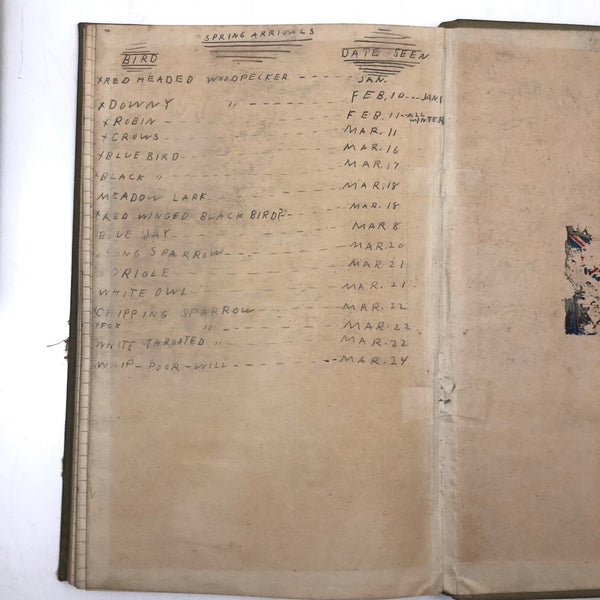 SPRING ARRIVALS
BIRD DATE SEEN
xRED HEADED WOODPECKER ---- JAN.
xDOWNY " ------ FEB. 10---JAN1
xROBIN ------ FEB. 11-ALL WINTER
xCROWS ------ MAR. 11
xBLUE BIRD ------ MAR. 16
BLACK " ------ MAR. 17
MEADOW LARK ------ MAR. 18
xRED WINGED BLACK BIRD?-- MAR. 18
BLUE JAY ------ MAR 8
xSONG SPARROW ------ MAR. 20
ORIOLE ------ MAR. 21
WHITE OWL ------ MAR. 21
xCHIPPING SPARROW ------ MAR. 22
xFOX " ------ MAR. 22
WHITE THROATED " ------ MAR. 22
WHIP-POOR-WILL ------ MAR. 24